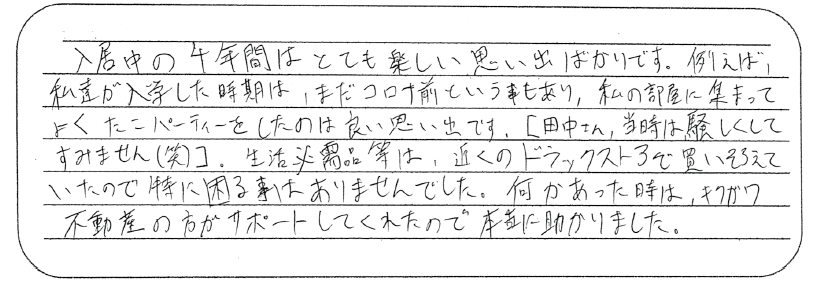 入居中の4年間はとても楽しい思い出ばかりです。例えば、
私達が入学した時期は、まだコロナ前という事もあり、私の部屋に集まって
よくたこパーティーをしたのは良い思い出です。[田中さん,当時は騒しくして
すみません(笑)]。生活必需品等は、近くのドラックストアで買いそろえて
いたので特に困る事はありませんでした。何かあった時は、キタガワ
不動産の方がサポートしてくれたので本当に助かりました。